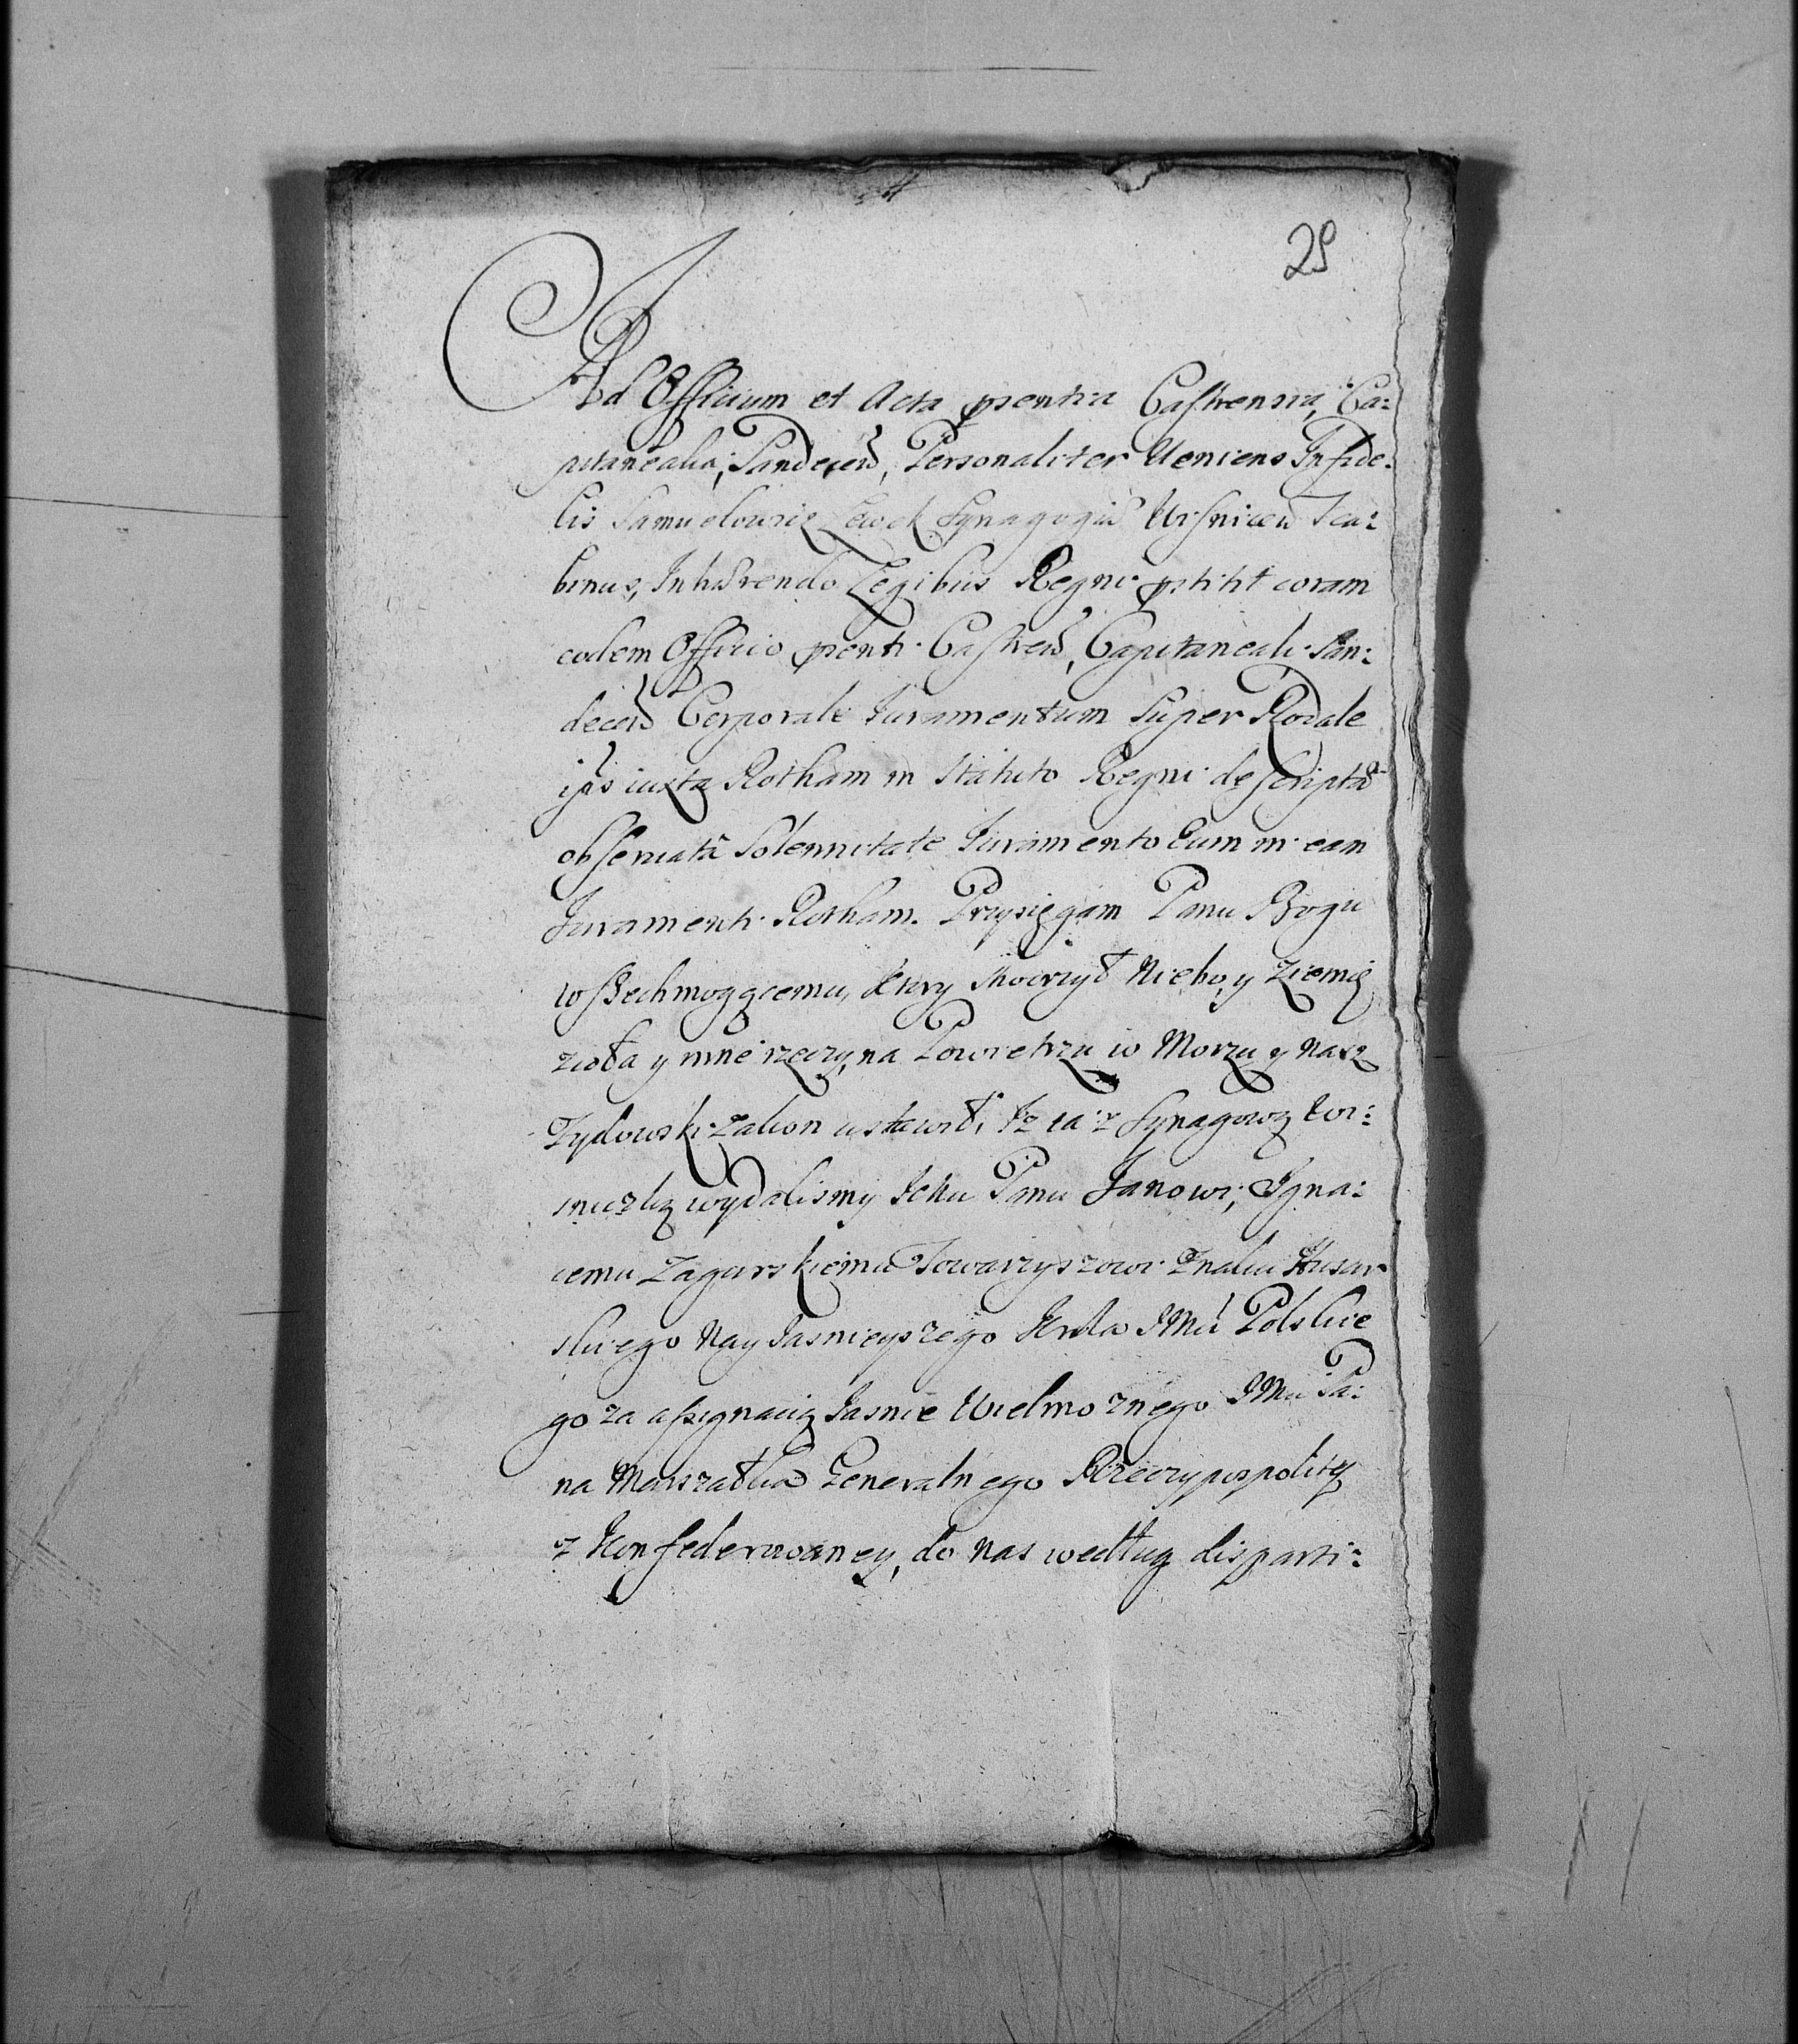 29
Ad Officium et Acta pńentia Castrensia, Ca:
pitanealia, Sandecen̄, Personaliter Veniens Infide:
lis Samuelowicz Lewek Synagogæ Wisnicen̄ Sca:
binus, Inhærendo Legibus Regni pstitit coram
eodem Officio pńenti Castren̄, Capitaneali San:
decen̄ Corporale Iuramentum super Rodale
iuxta Rotham in Statuto Regni descriptā
observatâ Solennitate Iuramento Eum in eam
Juramenti Rotham. Przysięgam Panu Bogu
wszechmogącemu, ktury stworzył Niebo, y Ziemię
zioła y inne rzeczy, na Powietrzu w Morzu y nasz
Zydowski zakon ustawił, Iz ia z Synagogą Wi:
snicką wydalismy Ichu Panu Janowi, Igna:
cemu Zagurskiemu Towarzyszowi Znaku Husar
skiego Nay Jasnieyszego Krola JMći Polskie
go za assignacią Jasnie Wielmoznego JMći Pa:
na Marszałka Generalnego Rzeczypospolitey
z Konfederowaney, do nas według disparti: